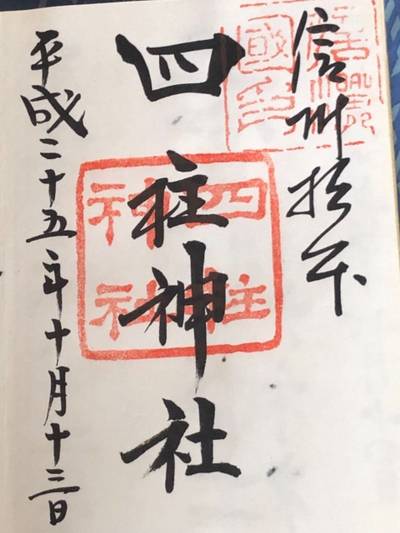 信州松本
四柱神社
平成二十五年十月十三日
四柱
神社